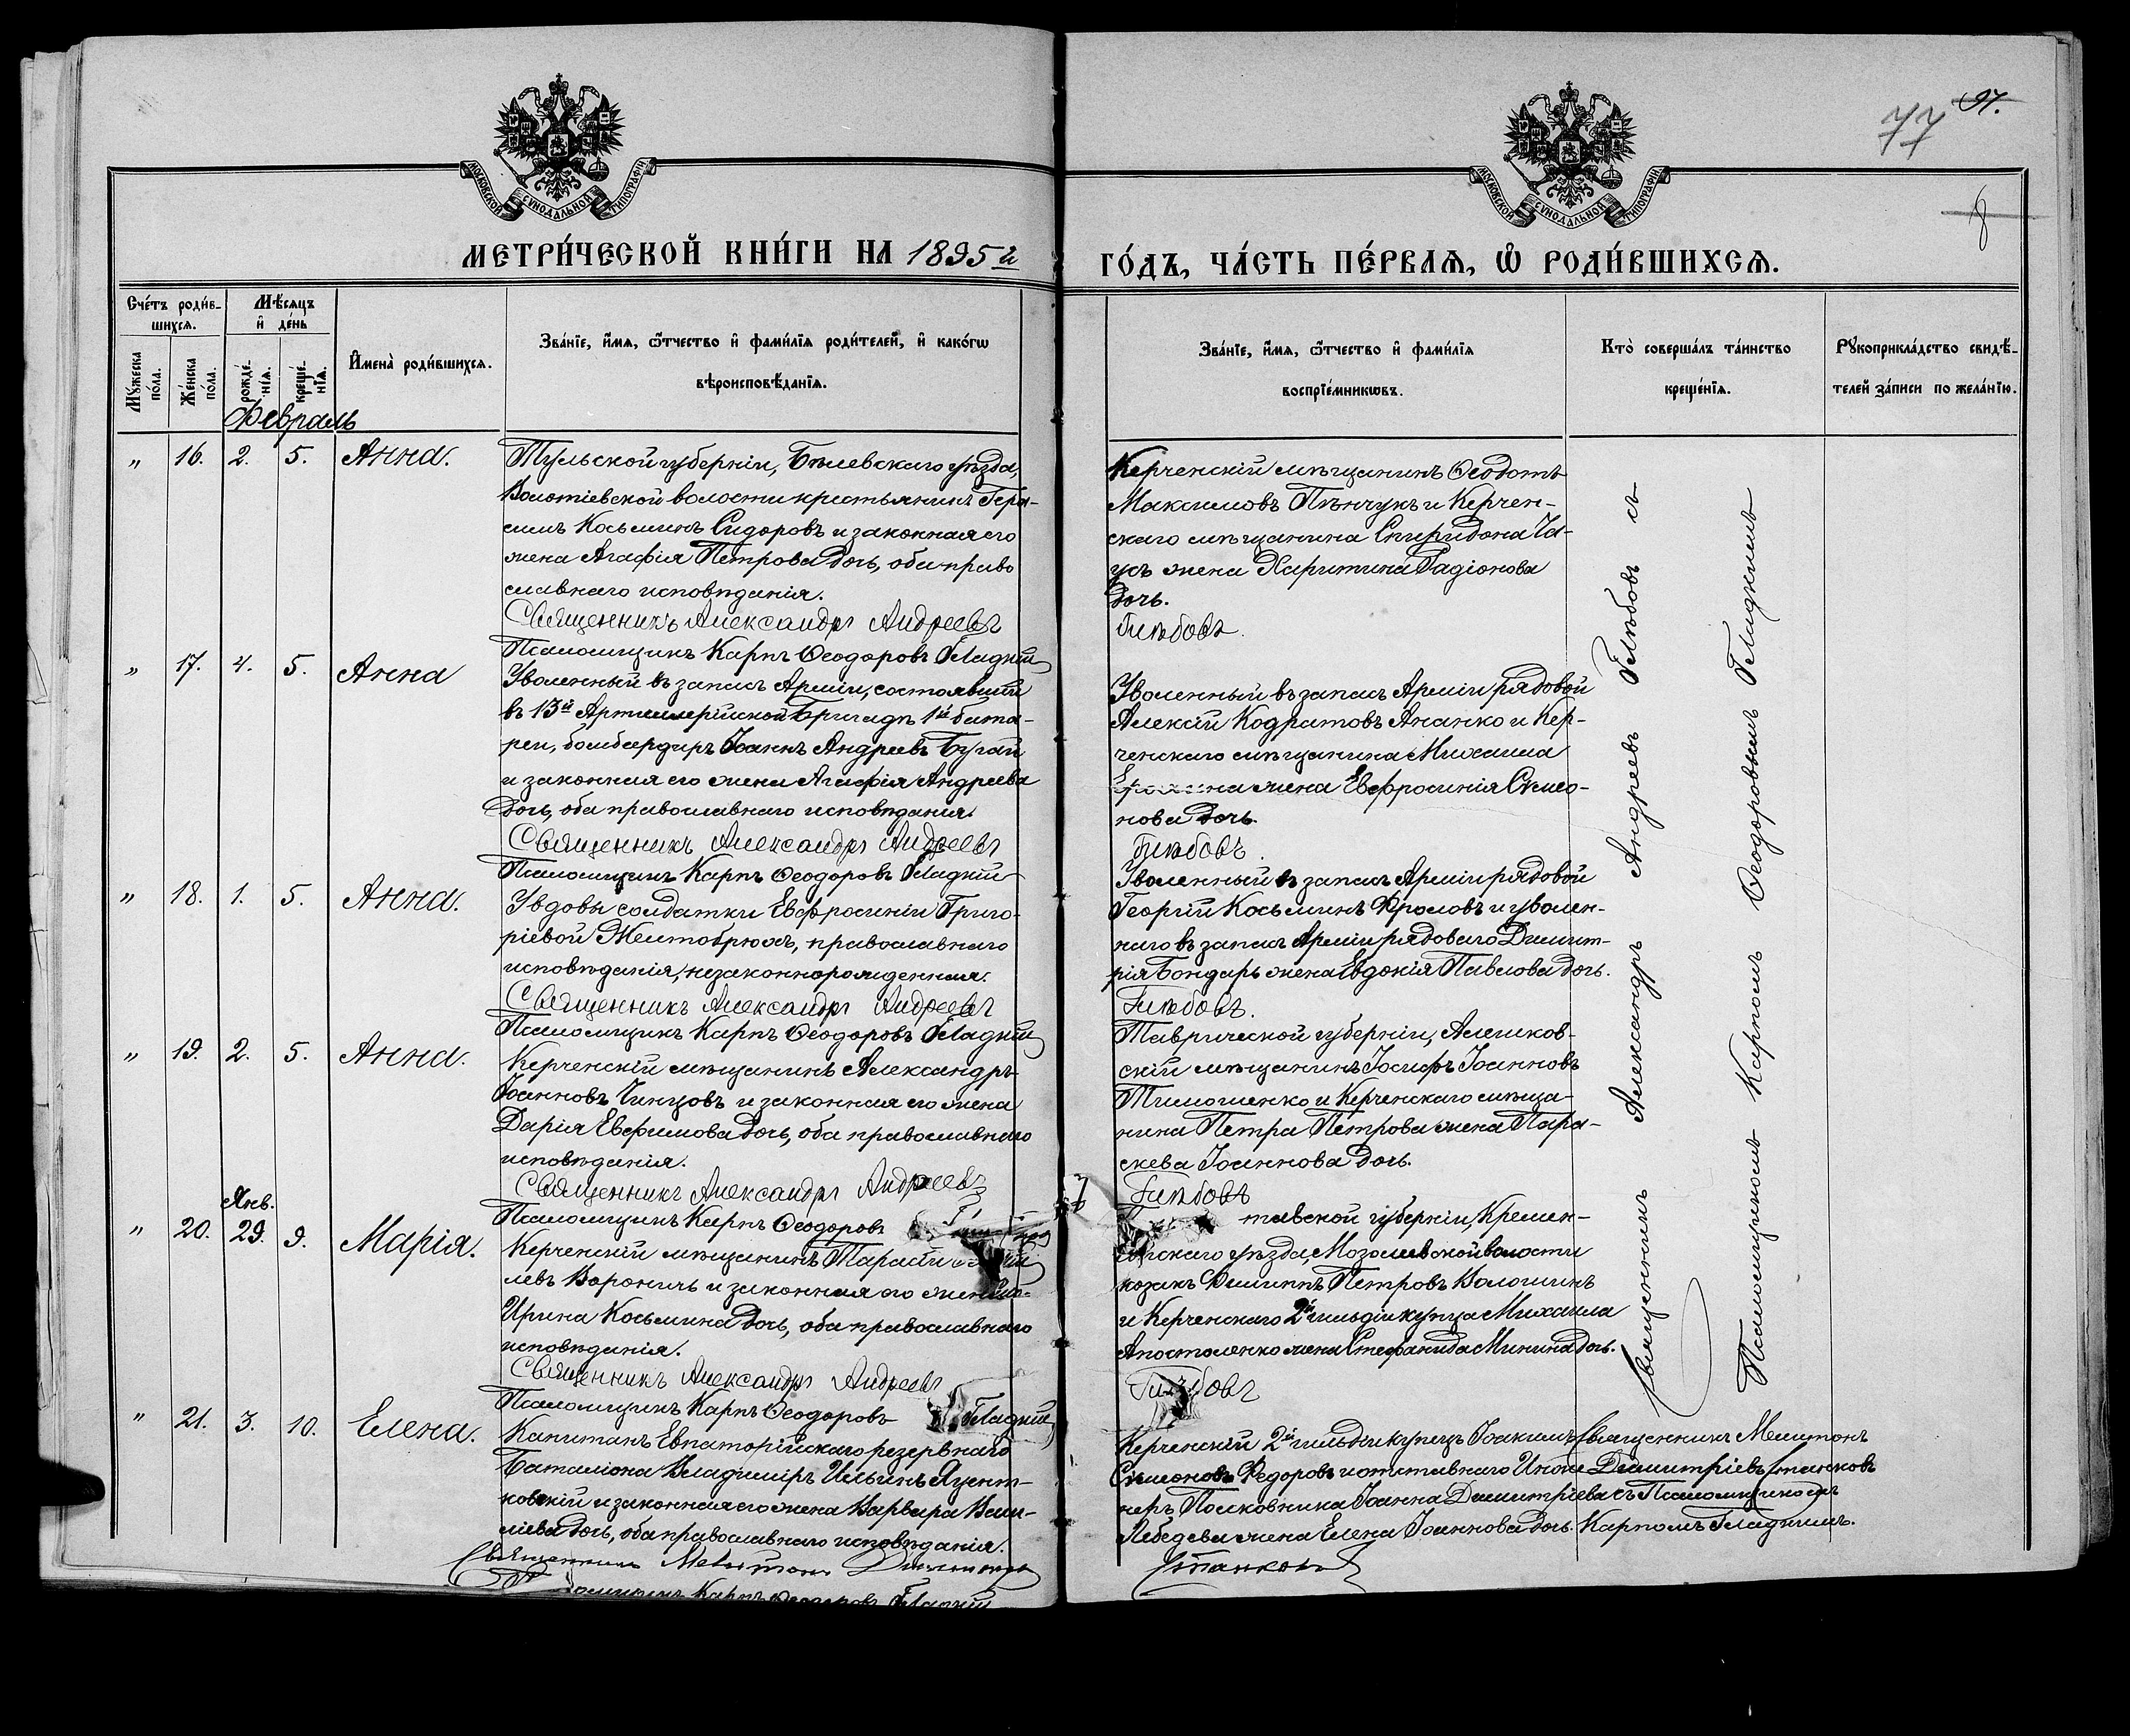 97.
77
8
МОСКОВСКОЙ СѴНОДАЛЬНОЙ ТИПОГРАФІИ
МОСКОВСКОЙ СѴНОДАЛЬНОЙ ТИПОГРАФІИ
МЕТРИ́ЧЕСКОЙ КНИ́ГИ НА 1895й
ГО́ДЪ, ЧА́СТЬ ПЕ́РВАѦ, Ѡ҆ РОДИ́ВШИХСѦ.
Сче́тъ роди́в-
шихсѧ.
Мѣ́сѧцъ
и҆ де́нь
Мꙋ́жеска по́ла.
Же́нска по́ла.
рожде́-
нїѧ.
креще́-
нїѧ.
И҆мена̀ роди́вшихсѧ.
Зва́нїе, и҆́мѧ, ѻ҆́тчество и҆ фами́лїѧ роди́телей, и҆ како́гѡ
вѣроисповѣ́данїѧ.
Зва́нїе, и҆́мѧ, ѻ҆́тчество и҆ фами́лїѧ
воспрїе́мникѡвъ.
Кто̀ соверша́лъ та́инство
креще́нїѧ.
Рꙋкоприкла́дство свидѣ́-
телей за́писи по жела́нїю.
Февраль
" 16. 2. 5. Анна.
Тульской губерніи, Бѣлевскаго уѣзда,
волости крестьянинъ Гера-
симъ Косьминъ Сидоровъ и законная его
жена Агафія Петрова дочь, оба право
славнаго исповѣданія.
Священникъ Александръ Андреевъ
Псаломщикъ Карпъ Ѳеодоровъ Гладкій
Керченскій мѣщанинъ Ѳеодотъ
Максимовъ Пѣнчукъ и Керчен-
скаго мѣщанина Спиридона Ча-
усъ жена Харитина Радіонова
дочь.
Глѣбовъ.
" 17. 4. 5. Анна
Уволенный въ запасъ Арміи, состоявшій
въ 13й Артиллерійской Бригадѣ 1й бата-
реи, бомбардиръ Іоаннъ Андреевъ Бугай
и законная его жена Агафія Андреева
дочь, оба православнаго исповѣданія.
Священникъ Александръ Андреевъ
Псаломщикъ Карпъ Ѳеодоровъ Гладкій
Уволенный въ запасъ Арміи рядовой
Алексій Кодратовъ Ананко и Кер-
ченскаго мѣщанина Михаила
жена Евфросинія Симео-
нова дочь.
Глѣбовъ.
" 18. 1. 5. Анна.
У вдовы солдатки Евфросиніи Григо-
ріевой Желтобрюхъ, православнаго
исповѣданія, незаконнорожденная.
Священникъ Александръ Андреевъ
Псаломщикъ Карпъ Ѳеодоровъ Гладкій
Уволенный въ запасъ Арміи рядовой
Георгій Косьминъ Фроловъ и уволен-
наго въ запасъ Арміи рядоваго Димит-
рія Бондарь жена Евдокія Павлова дочь.
Глѣбовъ.
" 19. 2. 5. Анна.
Керченскій мѣщанинъ Александръ
Іоанновъ Чинцовъ и законная его жена
Дарія Евфимова дочь, оба православнаго
исповѣданія.
Священникъ Александръ Андреевъ
Псаломщикъ Карпъ Ѳеодоровъ
Таврической губерніи, Алешков-
скій мѣщанинъ Іосифъ Іоанновъ
Тимошенко и Керченскаго мѣща-
нина Петра Петрова жена Пара-
скева Іоаннова дочь.
Глѣбовъ
Янв.
" 20. 29. 9. Марія.
Керченскій мѣщанинъ Тарасій
левъ Вороничъ и законная его жена
Ирина Косьмина дочь, оба православнаго
исповѣданія.
Священникъ Александръ Андреевъ
Псаломщикъ Карпъ Ѳеодоровъ Гладкій
тавской губерніи, Кремен-
скаго уѣзда, волости
козакъ Филиппъ Петровъ Волошинъ
и Керченскаго 2й гильдіи купца Михаила
Апостоленко жена Стефанида Минина дочь.
Глѣбовъ
" 21. 3. 10. Елена.
Капитанъ Евпаторійскаго резервнаго
Баталіона Владиміръ Ильинъ Яцент-
ковскій и законная его жена Варвара Васи-
ліева дочь, оба православнаго исповѣданія.
Священникъ Мелитонъ
Псаломщикъ Карпъ Ѳеодоровъ Гладкій
Керченскій 2й гильдіи купецъ Іоакимъ
Симеоновъ Федоровъ и отставнаго Инже-
неръ Полковника Іоанна Димитріева
Лебедева жена Елена Іоаннова дочь.
Станковъ
Священникъ Александръ Андреевъ Глѣбовъ съ
Псаломщикомъ Карпомъ Ѳеодоровымъ Гладкимъ
Священникъ Мелитонъ
Димитріевъ Станковъ
съ Псаломщикомъ
Карпомъ Гладкимъ.